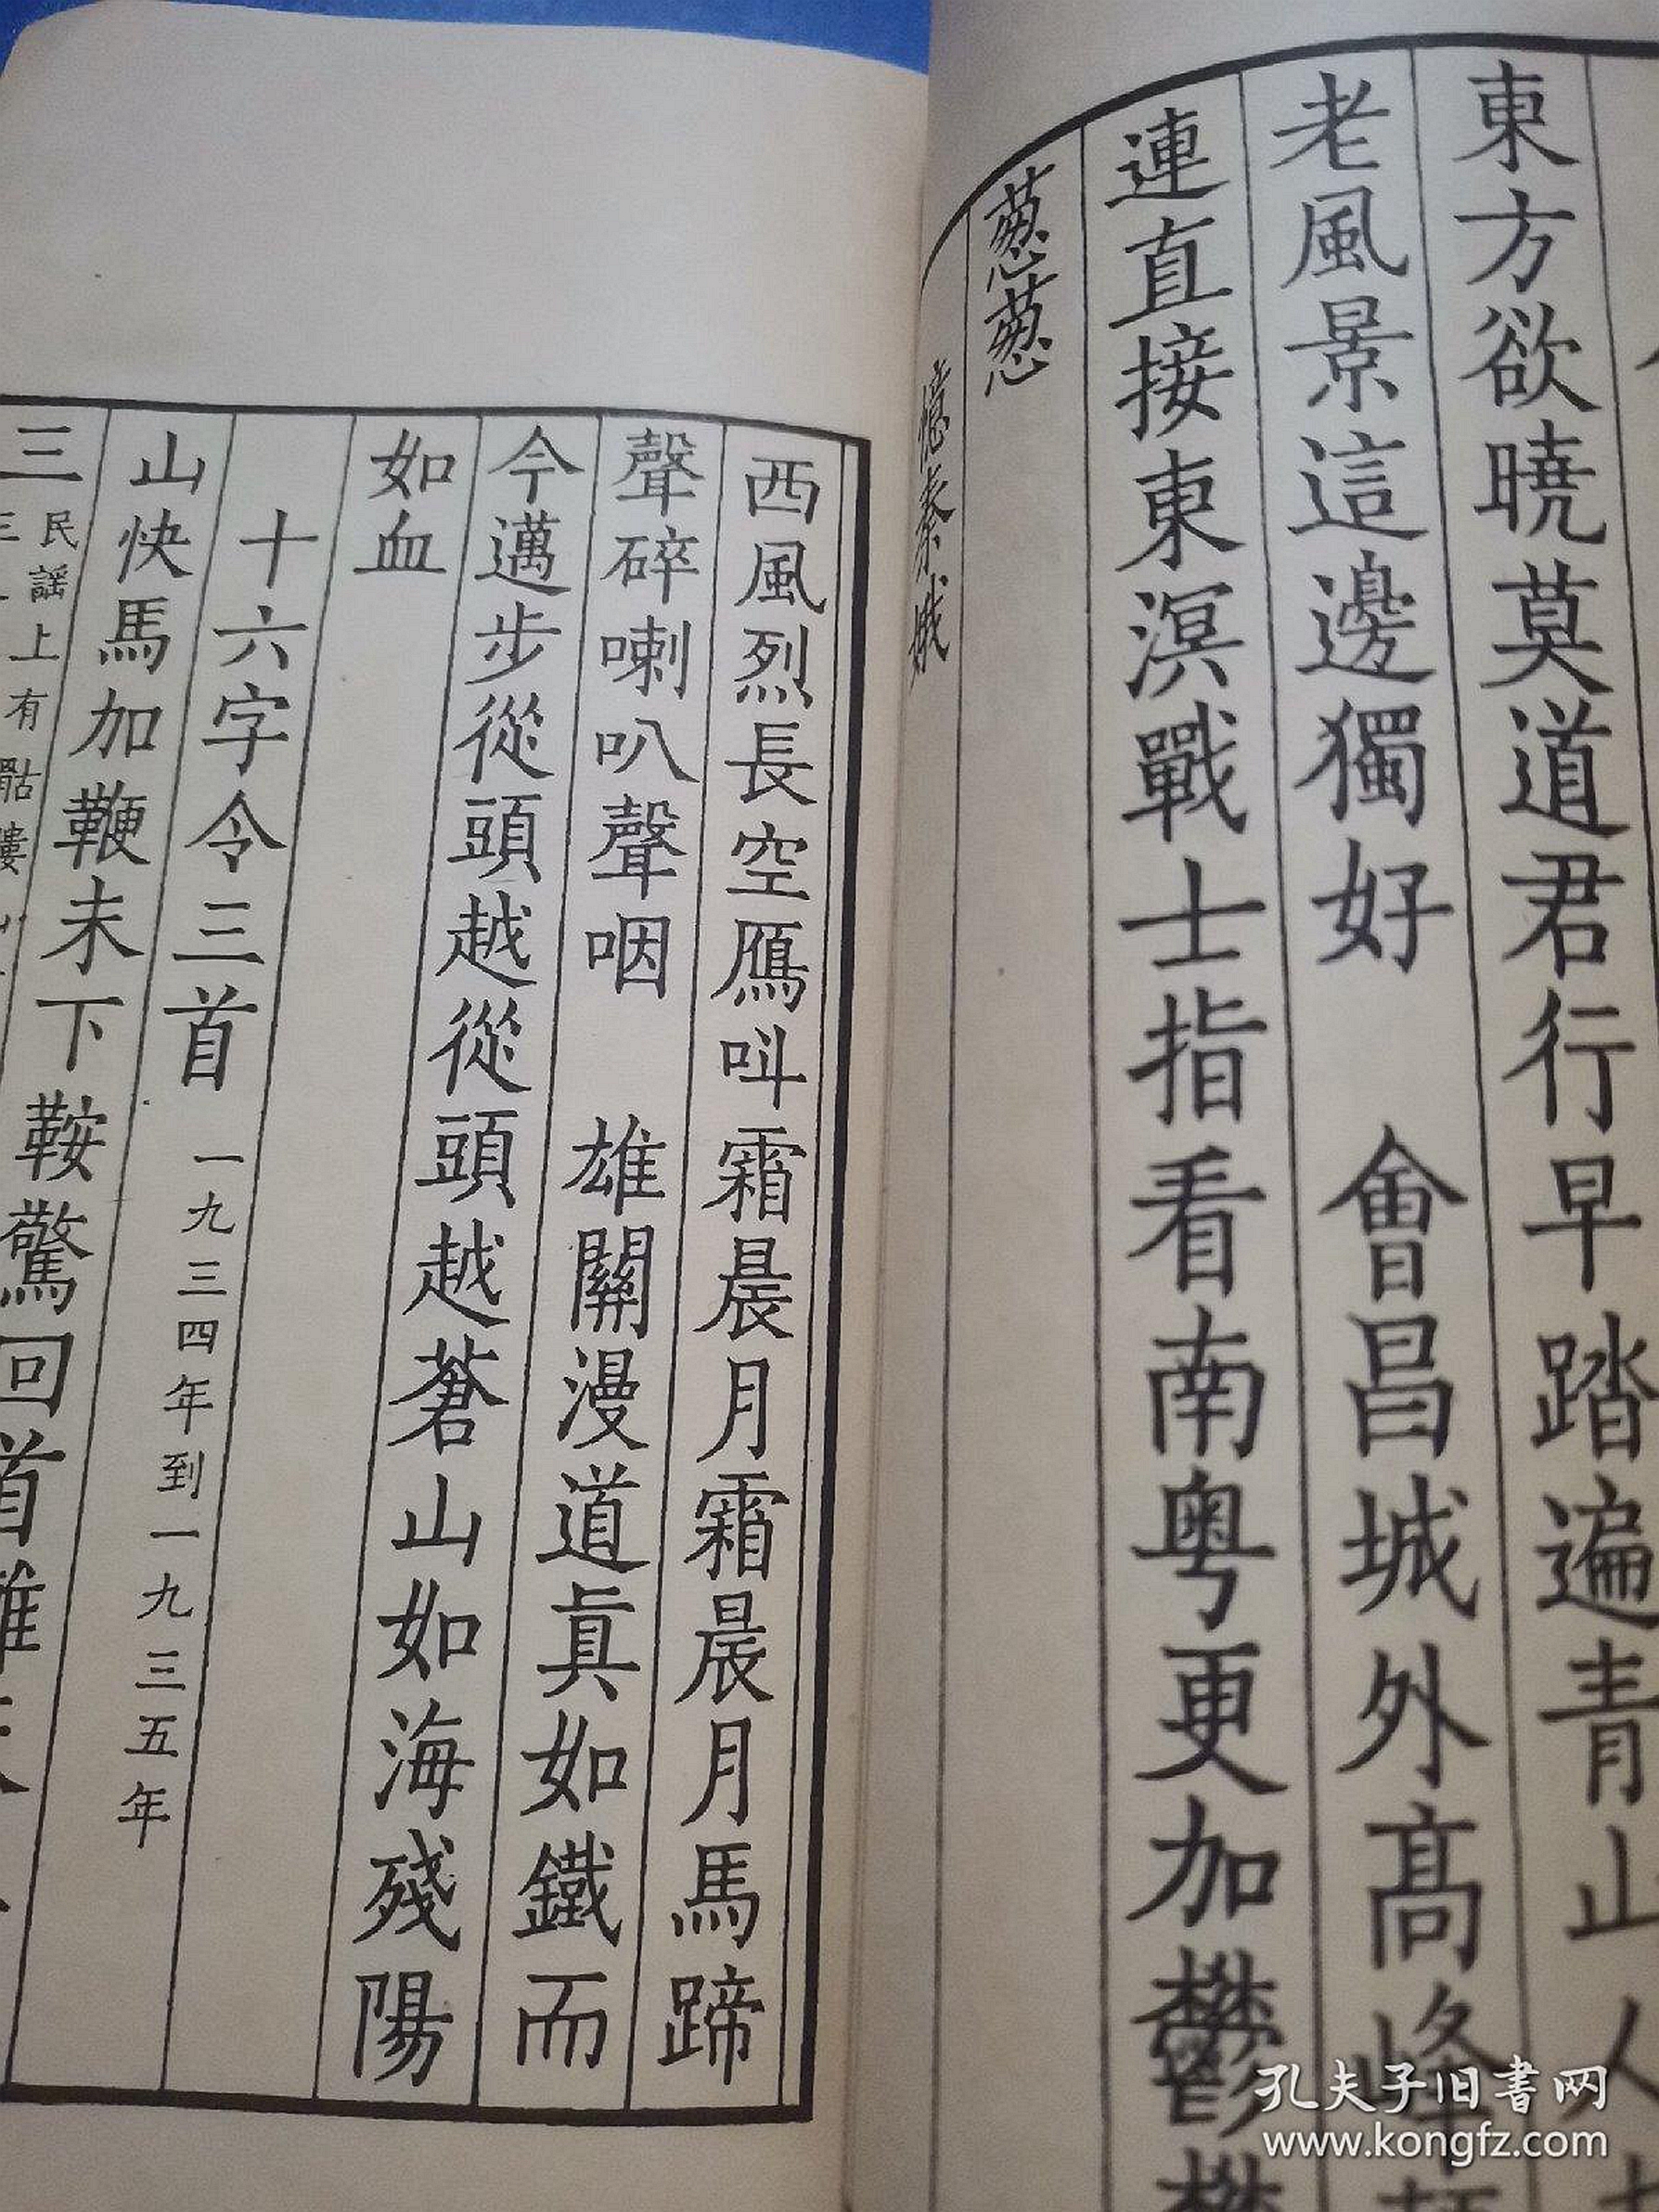 東方欲曉莫道君行早踏遍青山人
老風景這邊獨好　會昌城外高峰
連直接東溟戰士指看南粵更加鬱鬱
葱葱
憶秦娥
西風烈長空鴈呌霜晨月霜晨月馬蹄
聲碎喇叭聲咽　雄關漫道眞如鐵而
今邁步從頭越從頭越蒼山如海殘陽
如血
十六字令三首　一九三四年到一九三五年
山快馬加鞭未下鞍驚回首離
三
民謠上有骷髏
孔夫子旧書网
www.kongfz.com